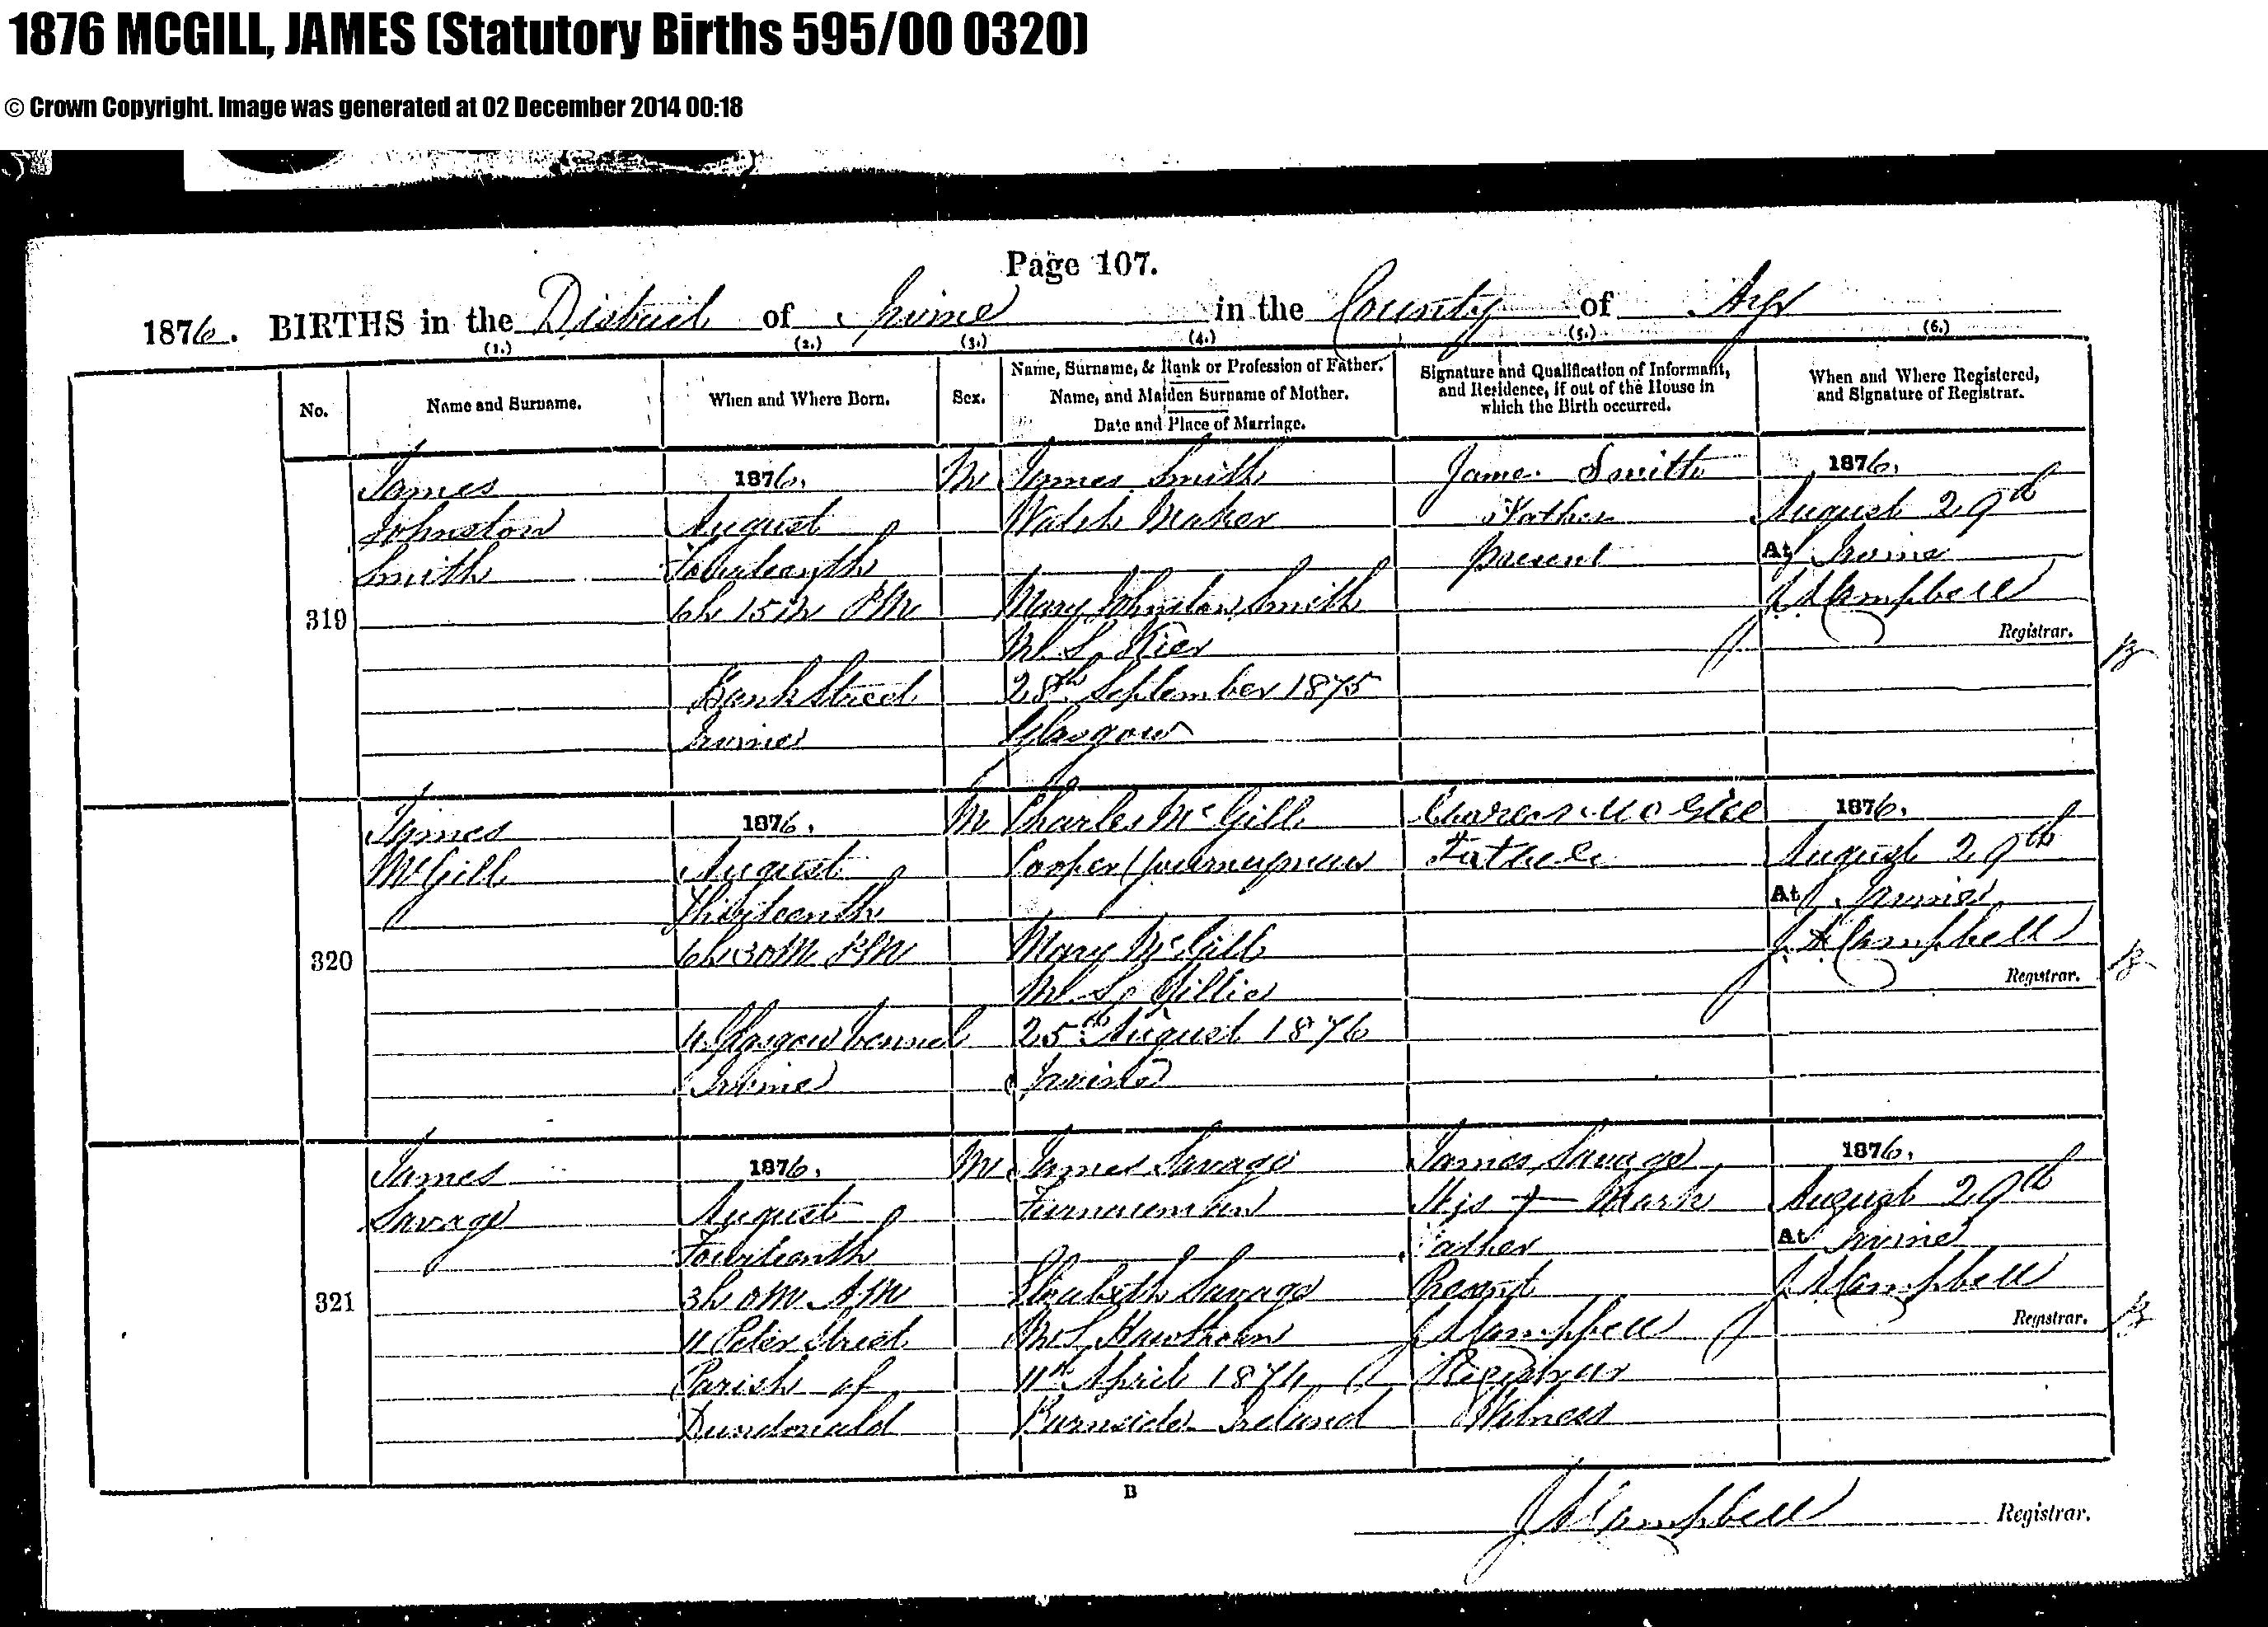 1876 MCGILL, JAMES (Statutory Births 595/00 0320)
© Crown Copyright. Image was generated at 02 December 2014 00:18
Page 107.
1876. BIRTHS in the District of Irvine in the County of Ayr
(1.) (2.) (3.) (4.) (5.) (6.)
No.
Name and Surname.
When and Where Born.
Sex.
Name, Surname, & Rank or Profession of Father.
Name, and Maiden Surname of Mother.
Date and Place of Marriage.
Signature and Qualification of Informant,
and Residence, if out of the House in
which the Birth occurred.
When and Where Registered,
and Signature of Registrar.
319
James
Johnston
Smith
1876.
August
Fourteenth
6h 15m PM
Bank Street
Irvine
M
James Smith
Watch Maker
Mary Johnston Smith
M.S. Kier
28th September 1875
Glasgow
James Smith
Father
present
1876.
August 29th
At Irvine
J Campbell
Registrar.
320
James
McGill
1876.
August
Thirteenth
6h 30M PM
4 Glasgow Vennel
Irvine
M
Charles McGill
Cooper (journeyman
Mary McGill
M.S. Gillie
25th August 1876
Irvine
Charles McGill
Father
1876.
August 29th
At Irvine
J Campbell
Registrar.
321
James
Savage
1876.
August
Fourteenth
3h 0M AM
11 Peter Street
Parish of
Dundonald
M
James Savage
Furnaceman
Elizabeth Savage
M.S. Hawthorn
11th April 1874
Burnside Ireland
James Savage
His + Mark
Father
Present
J Campbell
Registrar
Witness
1876.
August 29th
At Irvine
J Campbell
Registrar.
B
J Campbell Registrar.